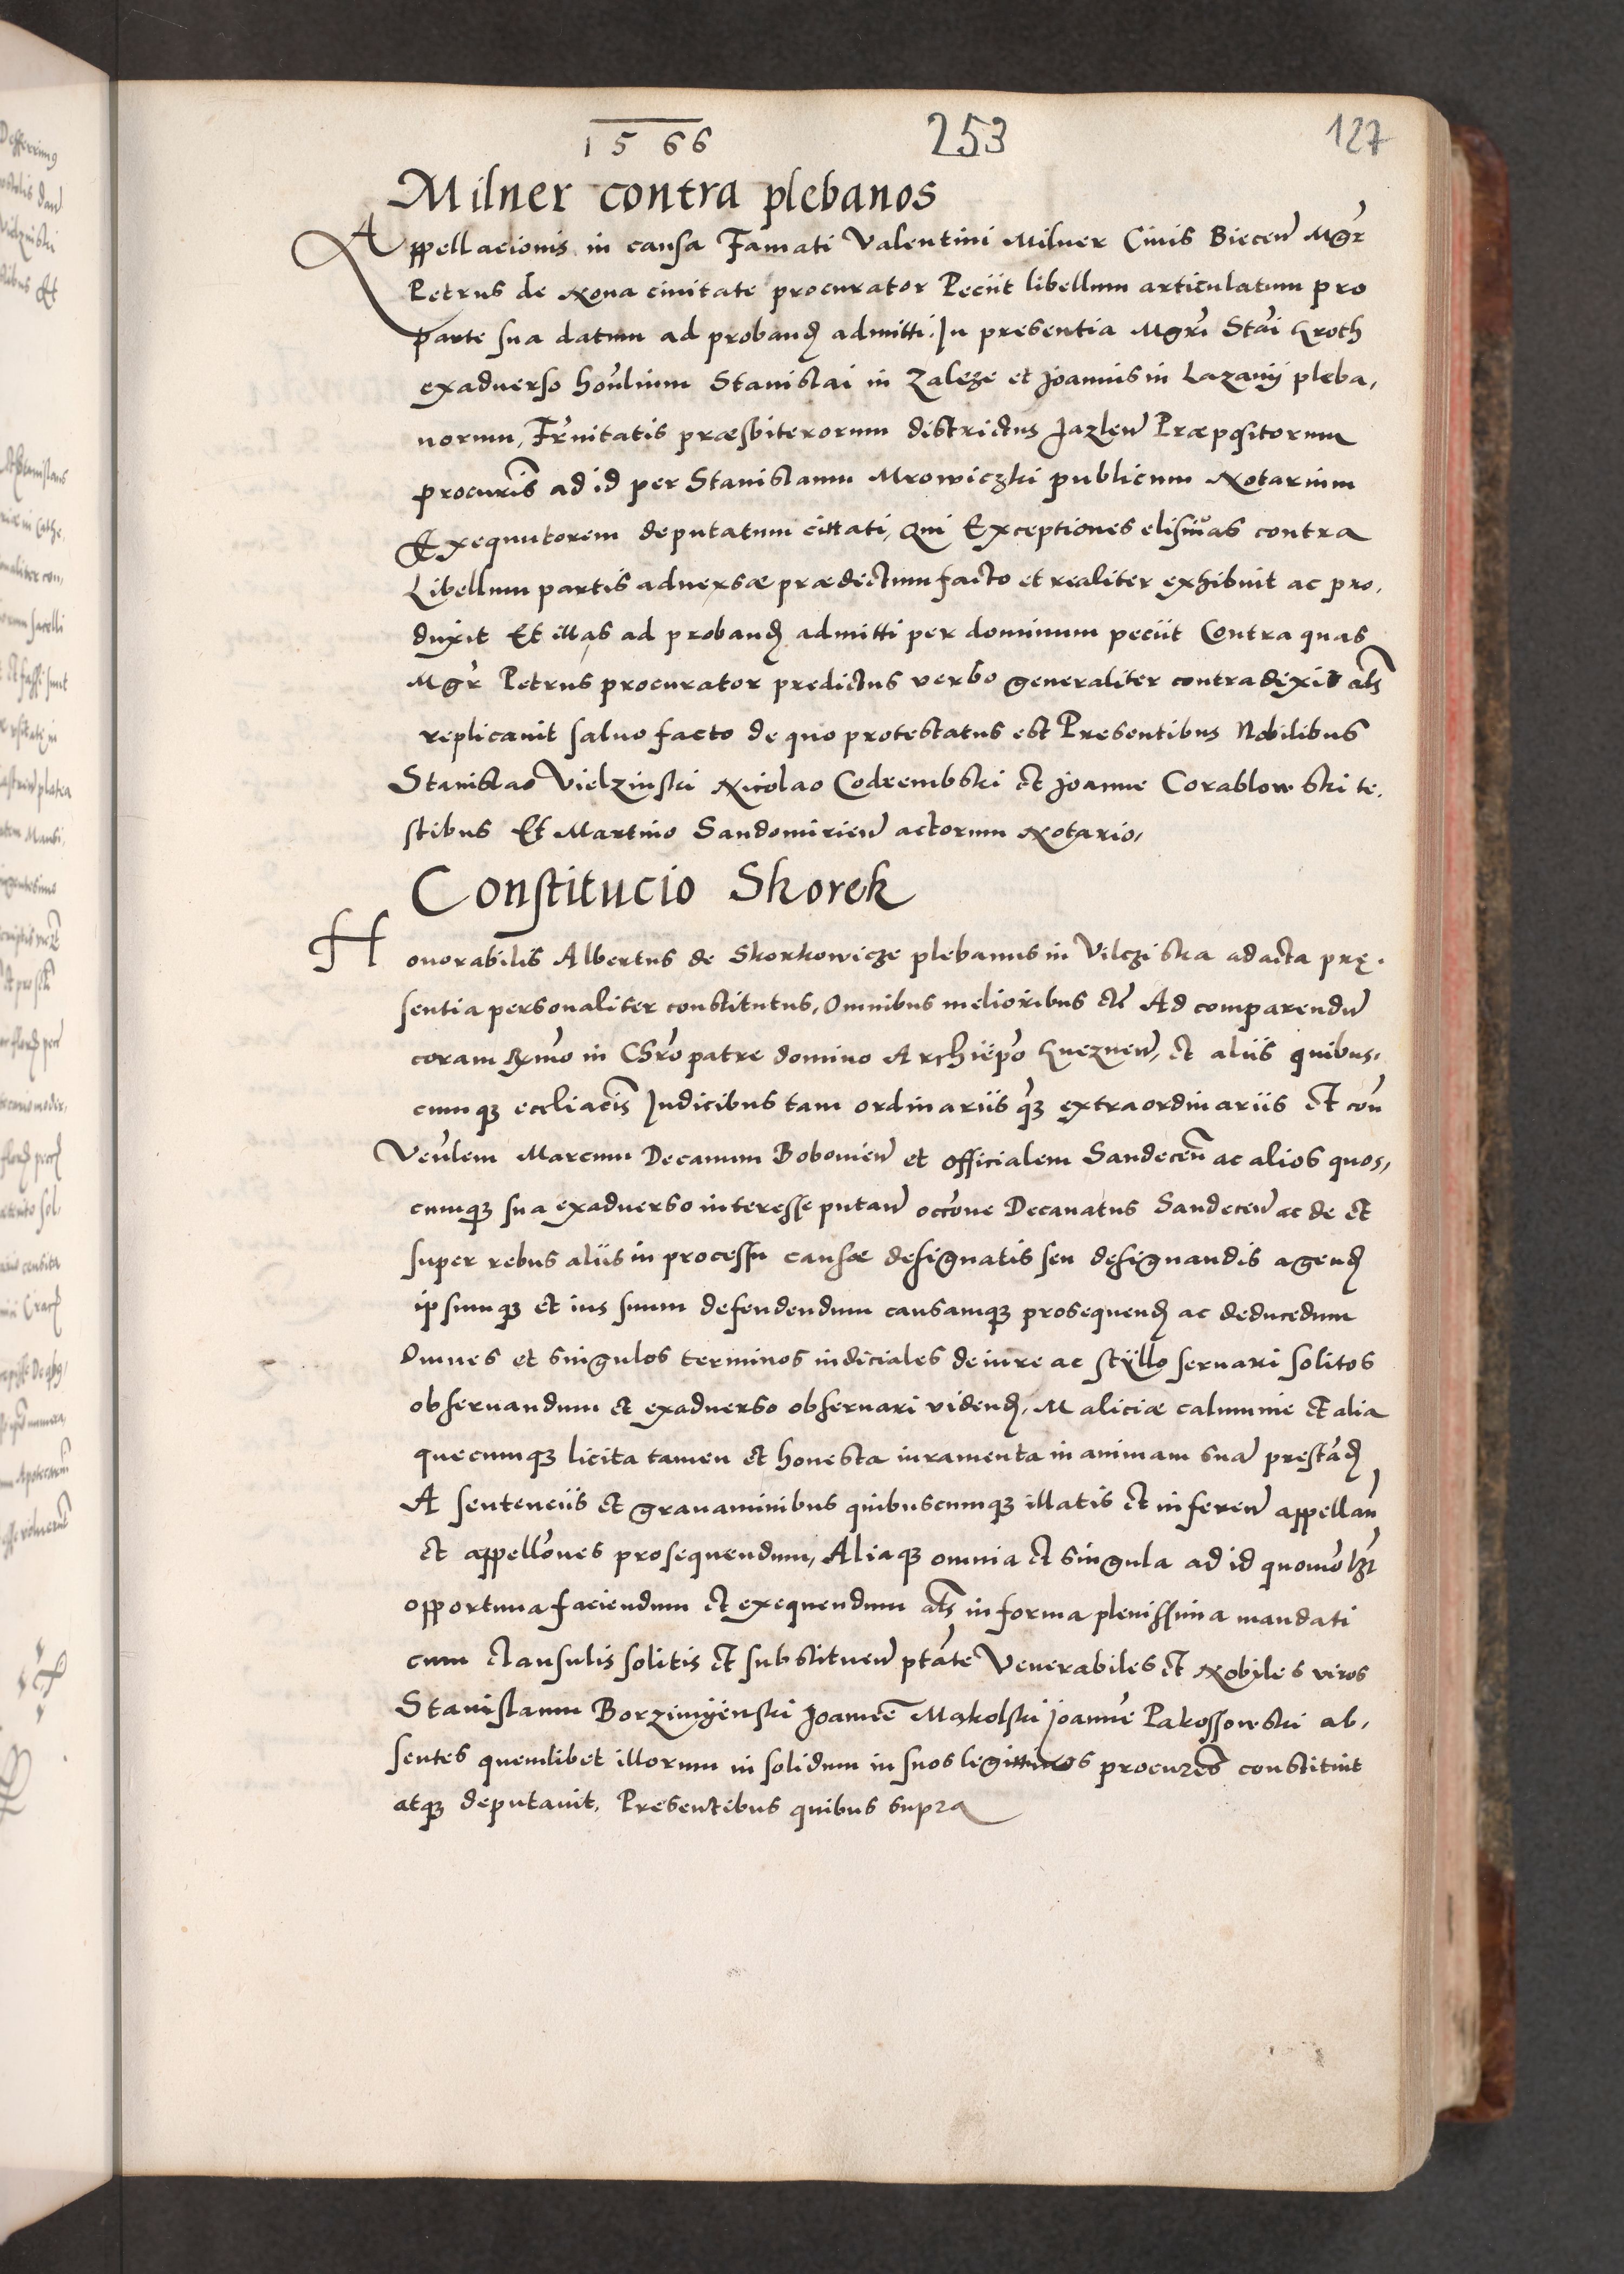 1566 253 127
Milner contra plebanos
Appellacionis in causa Famati Valentini Milner Civis Biecen̄ Mgr̄
Petrus de Nova civitate procurator Peciit libellum articulatum pro
parte sua datum ad proband̄ admitti. In presentia Mgri Stai Kroth
exadverso hon̄lium Stanislai in Zaleze et Joannis in Lazanij pleba,
norum, Fr̄nitatis præsbiterorum districtus Jazlen̄ Præpositorum
procur̄is ad id per Stanislaum Mrowiczki publicum Notarium
Exequutorem deputatum cittati, Qui Exceptiones elisivas contra
Libellum partis adversæ prædictum facto et realiter exhibuit ac pro,
duxit Et illas ad proband̄ admitti per dominum peciit Contra quas
Mgr̄ Petrus procurator predictus verbo generaliter contradixit al̄s
replicavit salvo facto de quo protestatus est Presentibus Nobilibus
Stanislao Vielzinski Nicolao Codrembski et Joanne Corablowski te,
stibus Et Martino Sandomirien̄ actorum Notario,
Constitucio Skorek
Honorabilis Albertus de Skorkowicze plebanus in Vilcziska ad acta prę,
sentia personaliter constitutus, Omnibus melioribus etc̄ Ad comparendū
coram Rmo in Chro patre domino Archiepo Gneznen̄, et aliis quibus,
cumqꝫ eccliacis Judicibus tam ordinariis qꝫ extraordinariis Et con̄
Ven̄lem Marcum Decanum Bobovien̄ et officialem Sandecen̄ ac alios quos,
cumqꝫ sua exadverso interesse putan̄ occ̄one Decanatus Sandecen̄ ac de et
super rebus aliis in processu causæ designatis seu designandis agend̄
ipsumqꝫ et ius suum defendendum causamqꝫ prosequend̄ ac deducedum
Omnes et singulos terminos iudiciales de iure ac styllo servari solitos
observandum et exadverso observari vidend̄, Maliciæ calumnie et alia
quecumqꝫ licita tamen et honesta iuramenta in animam suā prestād̄
A sentenciis et gravaminibus quibuscumqꝫ illatis et inferen̄ appellan̄
et appell̄ones prosequendum, Aliaqꝫ omnia et singula ad id quomo lꝫt
opportuna faciendum et exequendum al̄s in forma plenissima mandati
cum clausulis solitis et substituen̄ ptāte Venerabiles et Nobiles viros
Stanislaum Borzimijenski Joannē Makolski Joannē Pakossowski ab,
sentes quemlibet illorum in solidum in suos legittimos procur̄es constituit
atqꝫ deputavit, Presentibus quibus supra